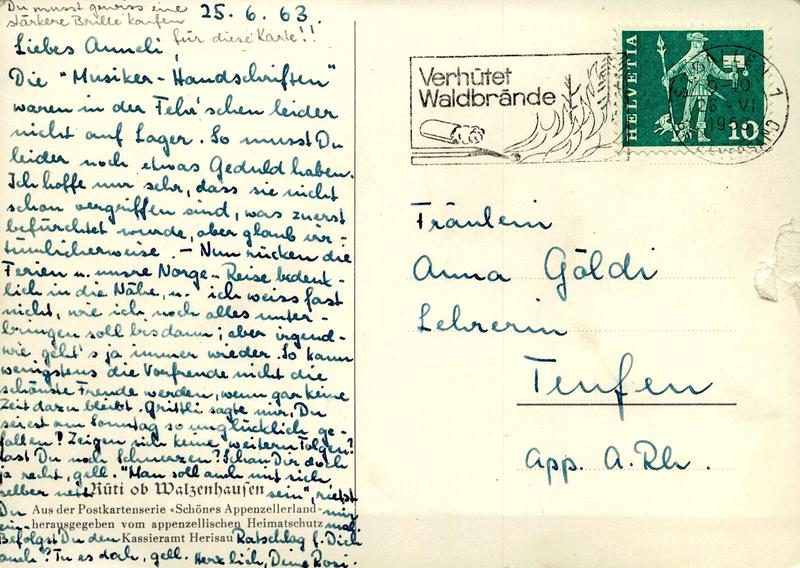 Du musst gewiss eine
stärkere Brille kaufen
für diese Karte!!
25.6.63.
Liebes Anneli,
Die "Musiker-Handschriften"
waren in der Fehr'schen leider
nicht auf Lager. So musst Du
leider noch etwas Geduld haben.
Ich hoffe nur sehr, dass sie nicht
schon vergriffen sind, was zuerst
befürchtet wurde, aber glaub irr-
tümlicherweise. – Nun rücken die
Ferien u. unsre Norge-Reise bedenk-
lich in die Nähe, u. ich weiss fast
nicht, wie ich noch alles unter-
bringen soll bis dann; aber irgend-
wie geht's ja immer wieder. So kann
wenigstens die Vorfreude nicht die
schönste Freude werden, wenn gar keine
Zeit dazu bleibt. Grittli sagte mir, Du
seiest am Sonntag so unglücklich ge-
fallen? Zeigen sich keine weitern Folgen?
Hast Du noch Schmerzen? Schau Dir doch
ja recht, gell. "Man soll auch mit sich
selber nett sein", rietst
Du mir
ein- mal.
Befolgst Du den Ratschlag f. Dich
auch? Tu es doch, gell. Herzlich, Deine Rosi.
Rüti ob Walzenhausen
Aus der Postkartenserie «Schönes Appenzellerland»
herausgegeben vom appenzellischen Heimatschutz
Kassieramt Herisau
Verhütet
Waldbrände
HELVETIA
10
Fräulein
Anna Göldi
Lehrerin
Teufen
App. A. Rh.